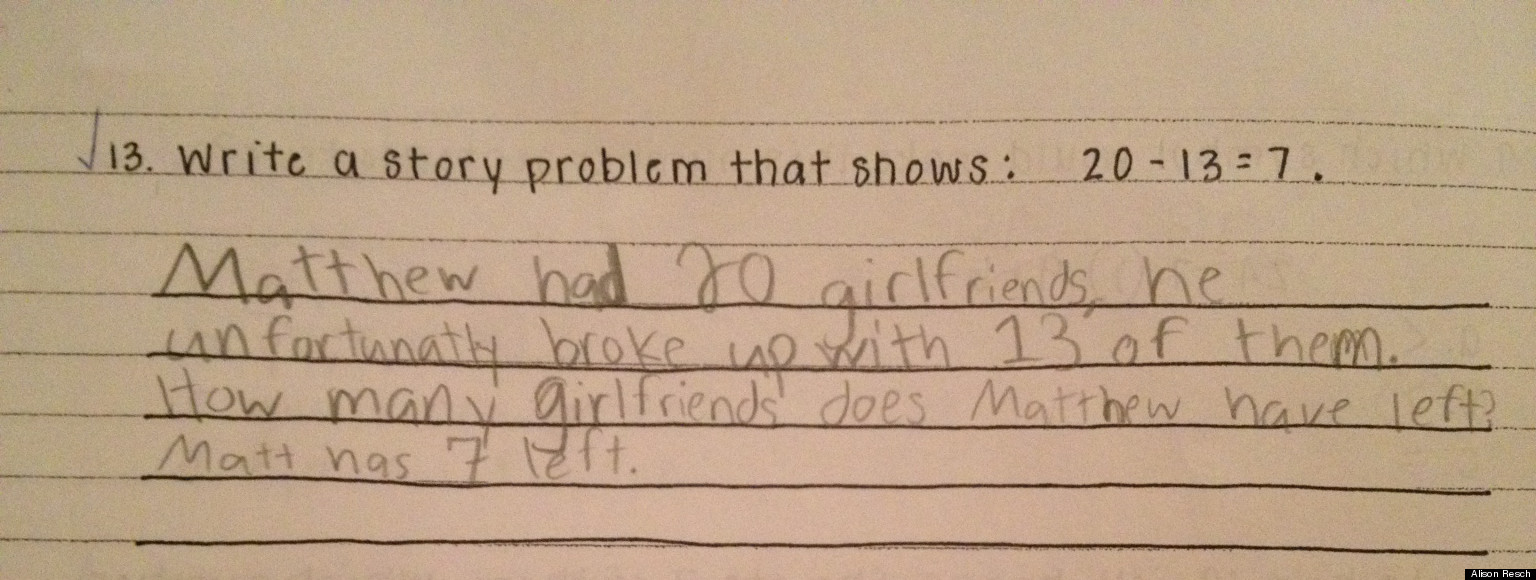 13. Write a story problem that shows: 20-13=7.
Matthew had 20 girlfriends, he
unfortunatly broke up with 13 of them.
How many girlfriends does Matthew have left?
Matt has 7 left.
Alison Resch